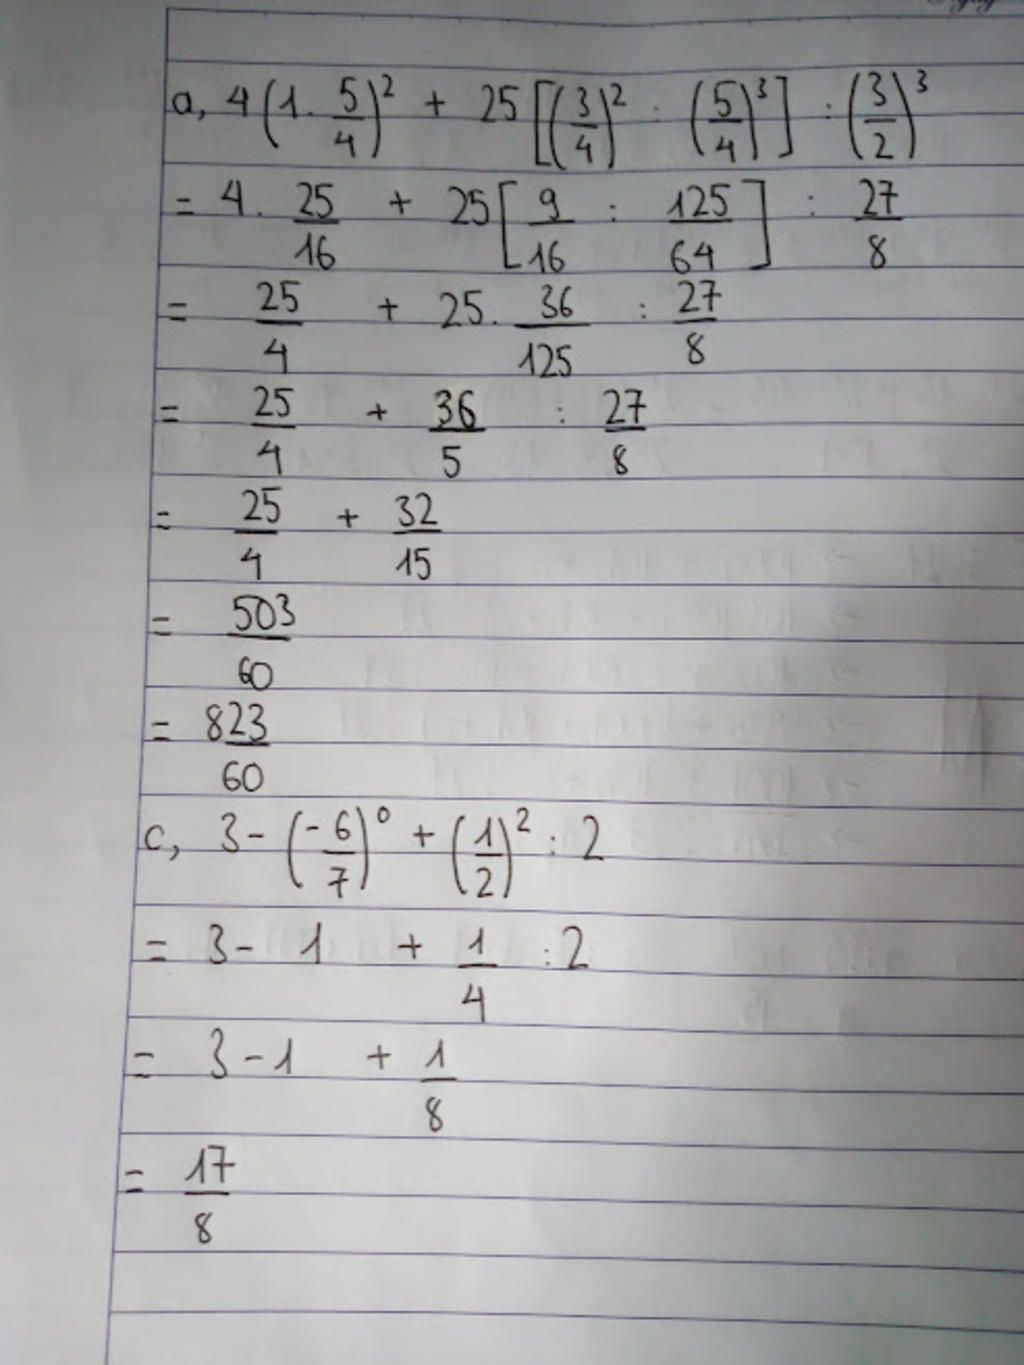 a, 4(1. 5/4)² + 25[(3/4)² : (5/4)³] : (3/2)³
= 4. 25/16 + 25[9/16 : 125/64] : 27/8
= 25/4 + 25. 36/125 : 27/8
= 25/4 + 36/5 : 27/8
= 25/4 + 32/15
= 503/60
= 8 23/60
c, 3 - (-6/7)⁰ + (1/2)² : 2
= 3 - 1 + 1/4 : 2
= 3 - 1 + 1/8
= 17/8